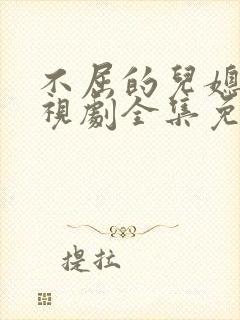 不屈的兒媳
視劇全集免
提拉